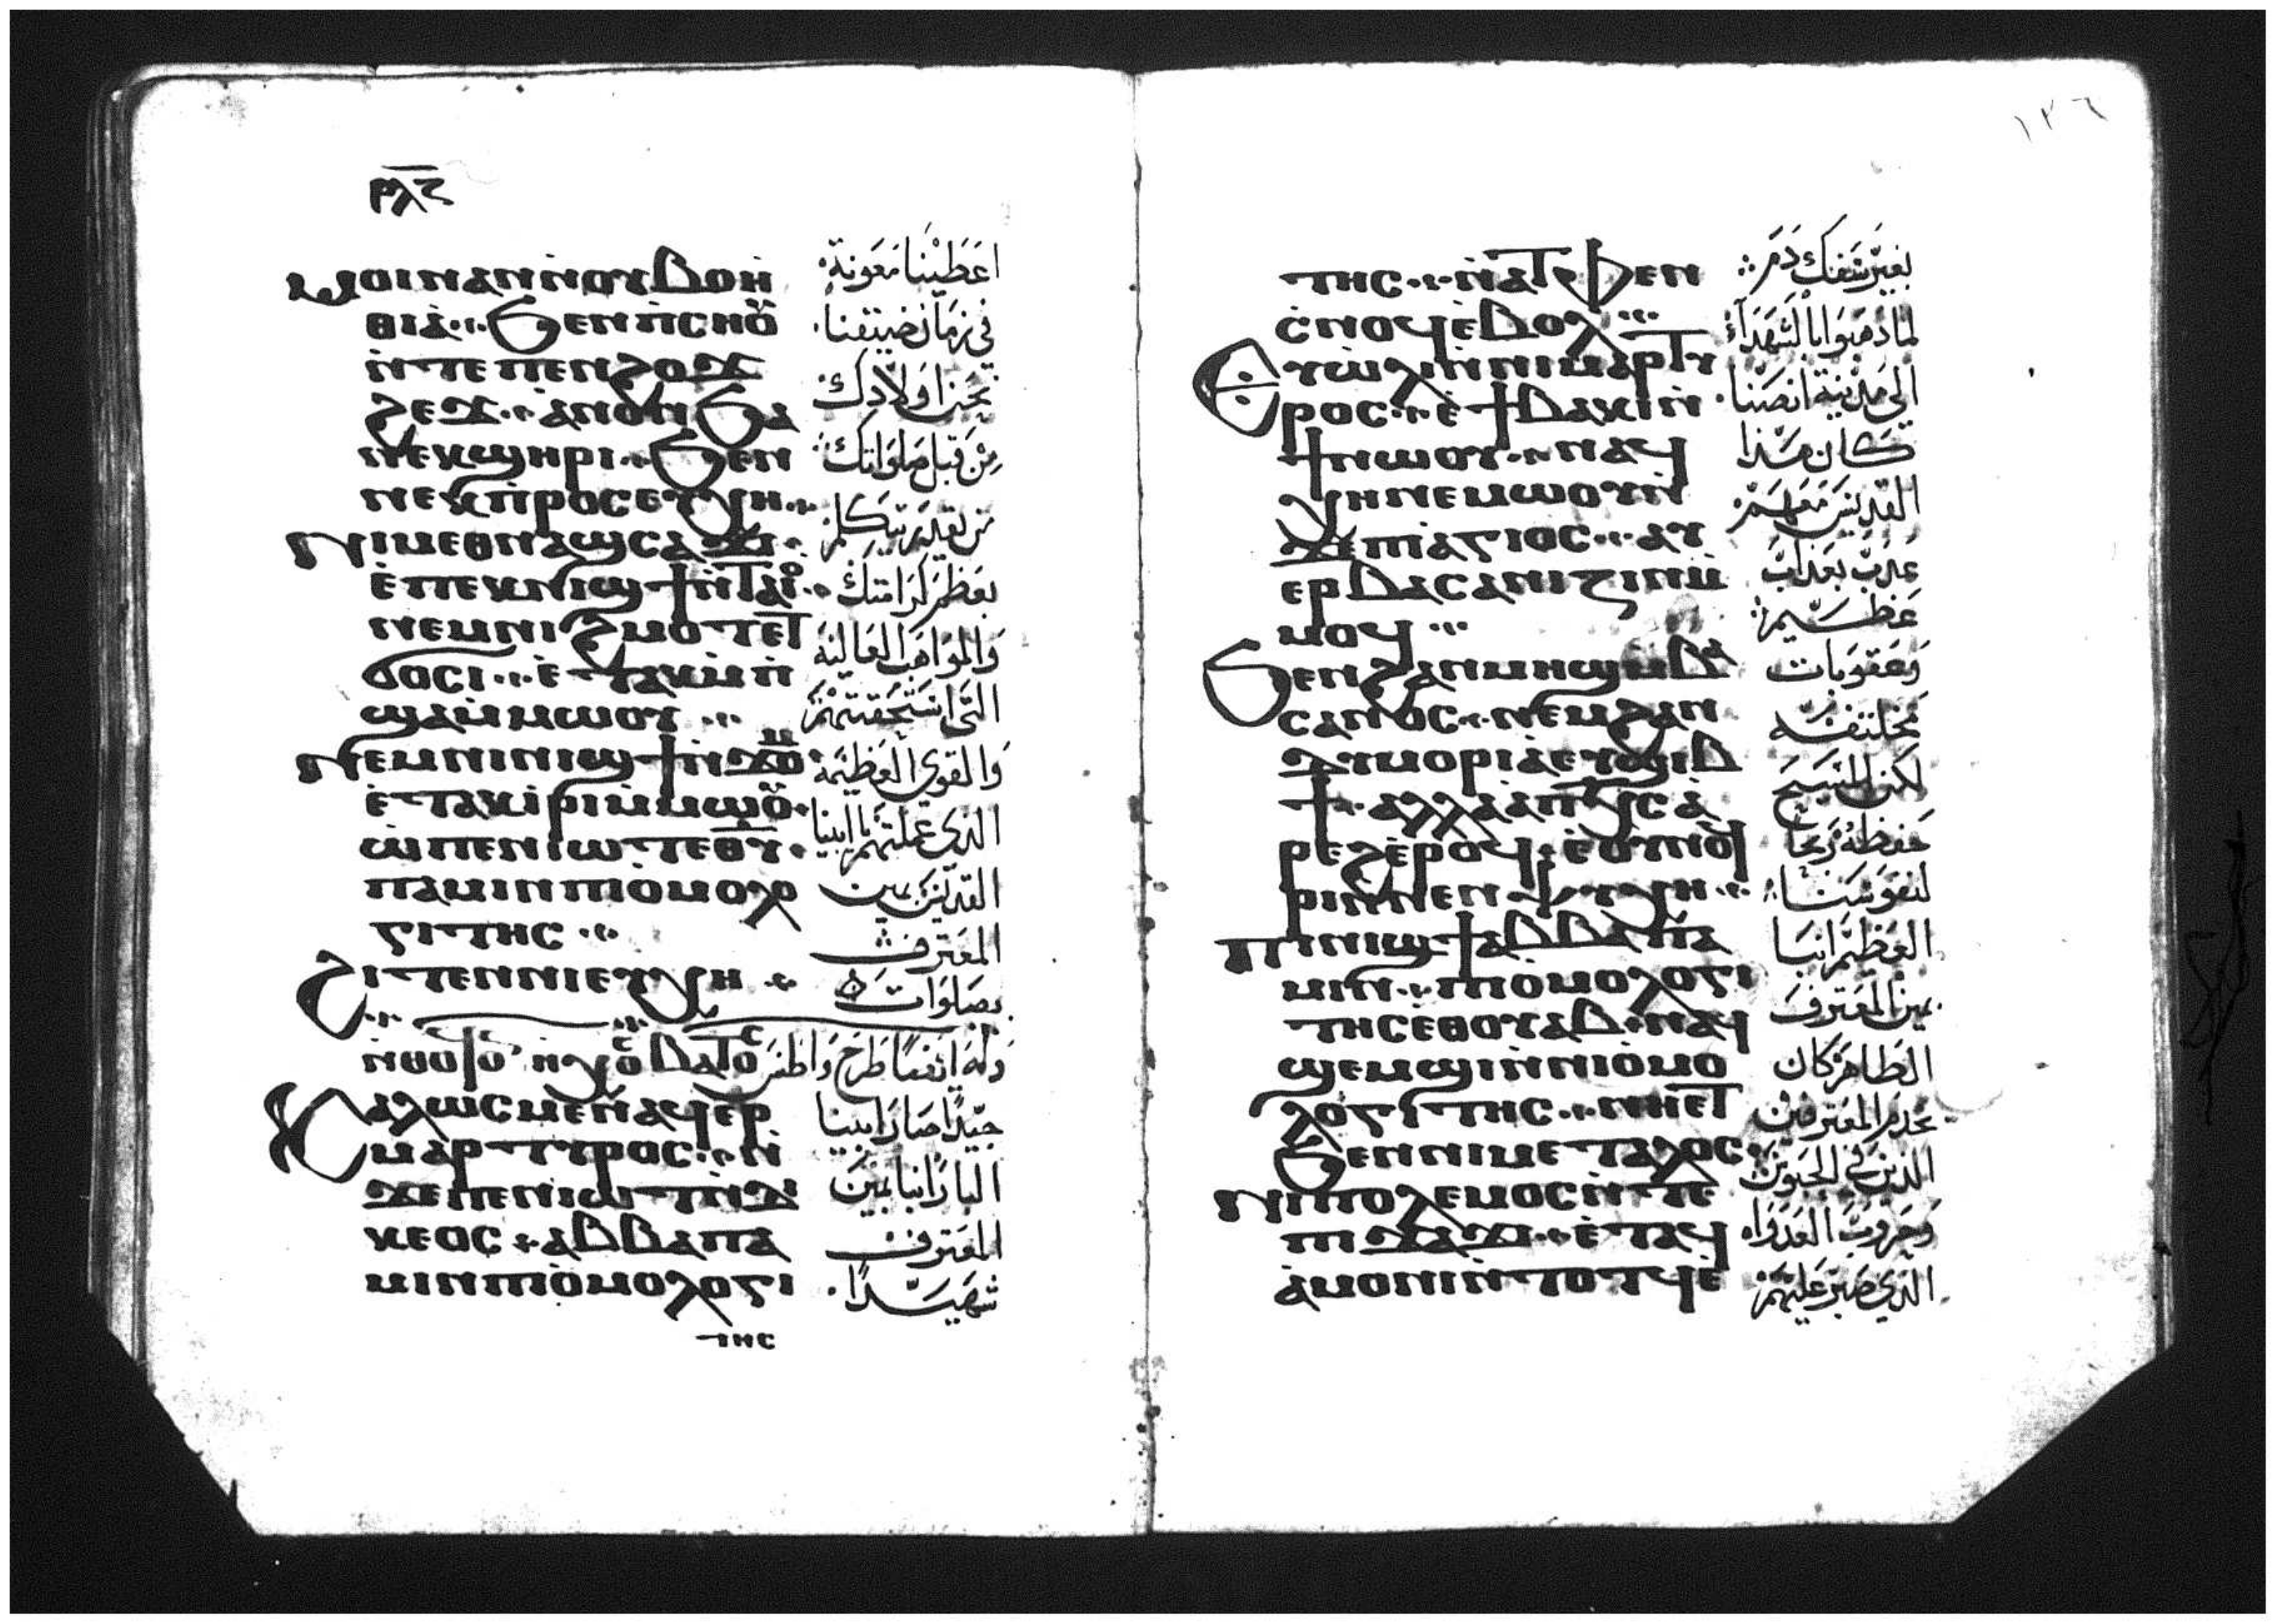 ⲣⲗⲋ
ⲙⲟⲓ ⲛⲁⲛ ⲛ̀ⲟⲩⲃⲟⲏ̀
ⲑⲓⲁ̀ ϧⲉⲛ ⲡⲥⲏⲟⲩ
ⲛ̀ⲧⲉ ⲡⲉⲛϩⲟϫ
ϩⲉϫ ⲁⲛⲟⲛ ϧⲁ
ⲛⲉⲕϣⲏⲣⲓ ϧⲉⲛ
ⲛⲉⲕⲡ̀ⲣⲟⲥⲉⲩⲭⲏ
ⲛⲓⲙ ⲉⲑⲛⲁϣⲥⲁϫⲓ
ⲉ̀ⲡⲉⲕⲛⲓϣϯ ⲛ̀ⲧⲁⲓⲟ
ⲛⲉⲙ ⲛⲓϩⲙⲟⲧ ⲉⲧ
ϭⲟⲥⲓ ⲉ̀ⲧⲁⲕⲙ̀ⲡ̀
ϣⲁ ⲙ̀ⲙⲱⲟⲩ
ⲛⲉⲙ ⲛⲓⲛⲓϣϯ ⲛ̀ϫⲟⲙ
ⲉ̀ⲧⲁⲕⲓ̀ⲣⲓ ⲙ̀ⲙⲱⲟⲩ
ⲱ̀ ⲡⲉⲛⲓⲱⲧ ⲉⲑⲩ
ⲡⲁⲙⲓⲛ ⲡⲓⲟ̀ⲙⲟⲗⲟ
ⲅⲓⲧⲏⲥ
ϩⲓⲧⲉⲛ ⲛⲓⲉⲩⲭⲏ
ⲛ̀ⲑⲟϥ ⲟⲛ ⲏⲭⲟⲥ ⲃⲁⲧⲟⲥ وله ايضا طرح واطس
ⲕⲁⲗⲱⲥ ⲙⲉⲛ ⲁϥⲉⲣ
ⲙⲁⲣⲧⲩⲣⲟⲥ ⲛ̀
ϫⲉ ⲡⲉⲛⲓⲱⲧ ⲛ̀ⲇⲓ
ⲕⲉⲟⲥ ⲁⲃⲃⲁ ⲡⲁ
ⲙⲓⲛ ⲡⲓⲟ̀ⲙⲟⲗⲟⲅⲓ
ⲧⲏⲥ
اعطينا معونة
في زمان ضيقتنا
نحن اولادك
من قبل صلواتك
من يقدر يتكلم
بعظم كرامتك
والمواهب العالية
التي استحقيتهم
والقوى العظيمة
الذي عملتهم يا ابينا
القديس بمين
المعترف
بصلوات
جيدا صار ابينا
البار انبا بمين
المعترف
شهيدا
١٣٦
ⲧⲏⲥ ⲛ̀ⲁⲧⲫⲉⲛ
ⲥ̀ⲛⲟϥ ⲉ̀ⲃⲟⲗ
ⲉⲩⲱⲗⲓ ⲛ̀ⲛⲓⲙⲁⲣⲧⲩ
ⲣⲟⲥ ⲉ̀ϯⲃⲁⲕⲓ ⲛ̀
ϯⲛⲱⲟⲩ ⲛⲁϥ
ⲭⲏ ⲛⲉⲙⲱⲟⲩ ⲛ̀
ϫⲉ ⲡⲓⲁⲅⲓⲟⲥ ⲁⲩ
ⲉⲣⲃⲁⲥⲁⲛⲓⲍⲓⲛ ⲙ̀
ⲙⲟϥ
ϧⲉⲛ ϩⲁⲛⲙⲏϣ ⲙ̀ⲃⲁ
ⲥⲁⲛⲟⲥ ⲛⲉⲙ ϩⲁⲛ
ⲇⲩⲙⲟⲣⲓⲁ̀ ⲉⲩϣⲓⲃ
ϯ ⲁⲗⲗⲁ ⲁ̀ ⲡⲭⲥ ⲁ̀
ⲣⲉϩ ⲉ̀ⲣⲟϥ ⲉ̀ⲟⲩⲛⲟϥ
ⲣⲓ ⲛ̀ⲛⲉⲛⲯⲩⲭⲏ
ⲡⲓⲛⲓϣϯ ⲁⲃⲃⲁ ⲡⲁ
ⲙⲓⲛ ⲡⲓⲟ̀ⲙⲟⲗⲟⲅⲓ
ⲧⲏⲥ ⲉⲑⲟⲩⲁⲃ ⲛⲁϥ
ϣⲉⲙϣⲓ ⲛ̀ⲛⲓⲟ̀ⲙⲟ
ⲗⲟⲅⲓⲧⲏⲥ ⲛⲏⲉⲧ
ϧⲉⲛ ⲛⲓⲙⲉⲧⲁⲗⲟⲥ
ⲛⲓⲡⲟⲗⲉⲙⲟⲥ ⲛ̀ⲧⲉ
ⲡⲓϫⲁϫⲓ ⲉ̀ⲧⲁϥ
ⲁ̀ⲙⲟⲛⲓ ⲛ̀ⲧⲟⲧϥ ⲉ̀
بغير سفك دم
لما ذهبوا بالشهداء
الى مدينة انصنا
كان هذا
القديس معهم
عذب بعذاب
عظيم
وعقوبات
مختلفة
لكن المسيح
حفظه ربحا
لنفوسنا
العظيم انبا
بمين المعترف
الطاهر كان
يخدم المعترفين
الذين في الحبوس
وحروب العدو
الذي صبر عليهم